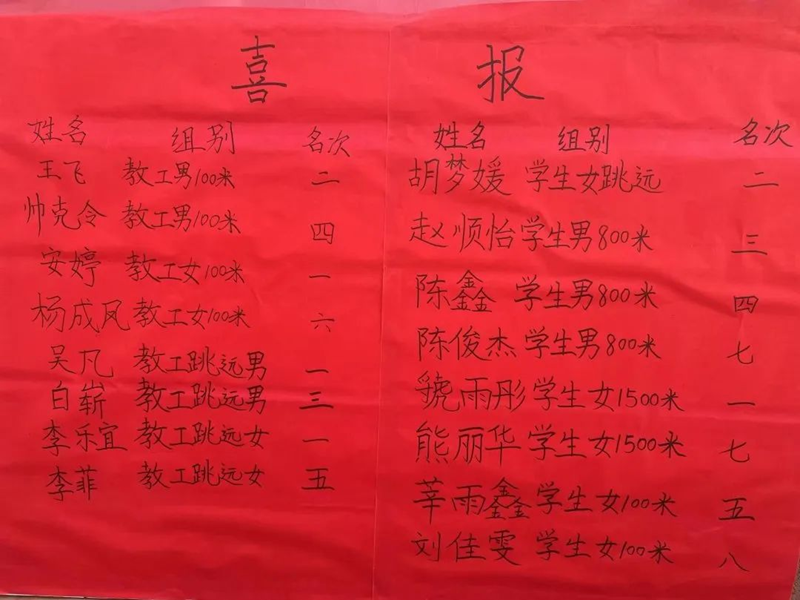 喜 报
姓名 组别 名次
王飞 教工男100米 二
帅克令 教工男100米 四
安婷 教工女100米 一
杨成凤 教工女100米 六
吴凡 教工跳远男 一
白崭 教工跳远男 三
李乐宜 教工跳远女 一
李菲 教工跳远女 五
姓名 组别 名次
胡梦媛 学生女跳远 二
赵顺怡 学生男800米 三
陈鑫 学生男800米 四
陈俊杰 学生男800米 七
雨彤 学生女1500米 一
熊丽华 学生女1500米 七
莘雨鑫 学生女100米 五
刘佳雯 学生女100米 八